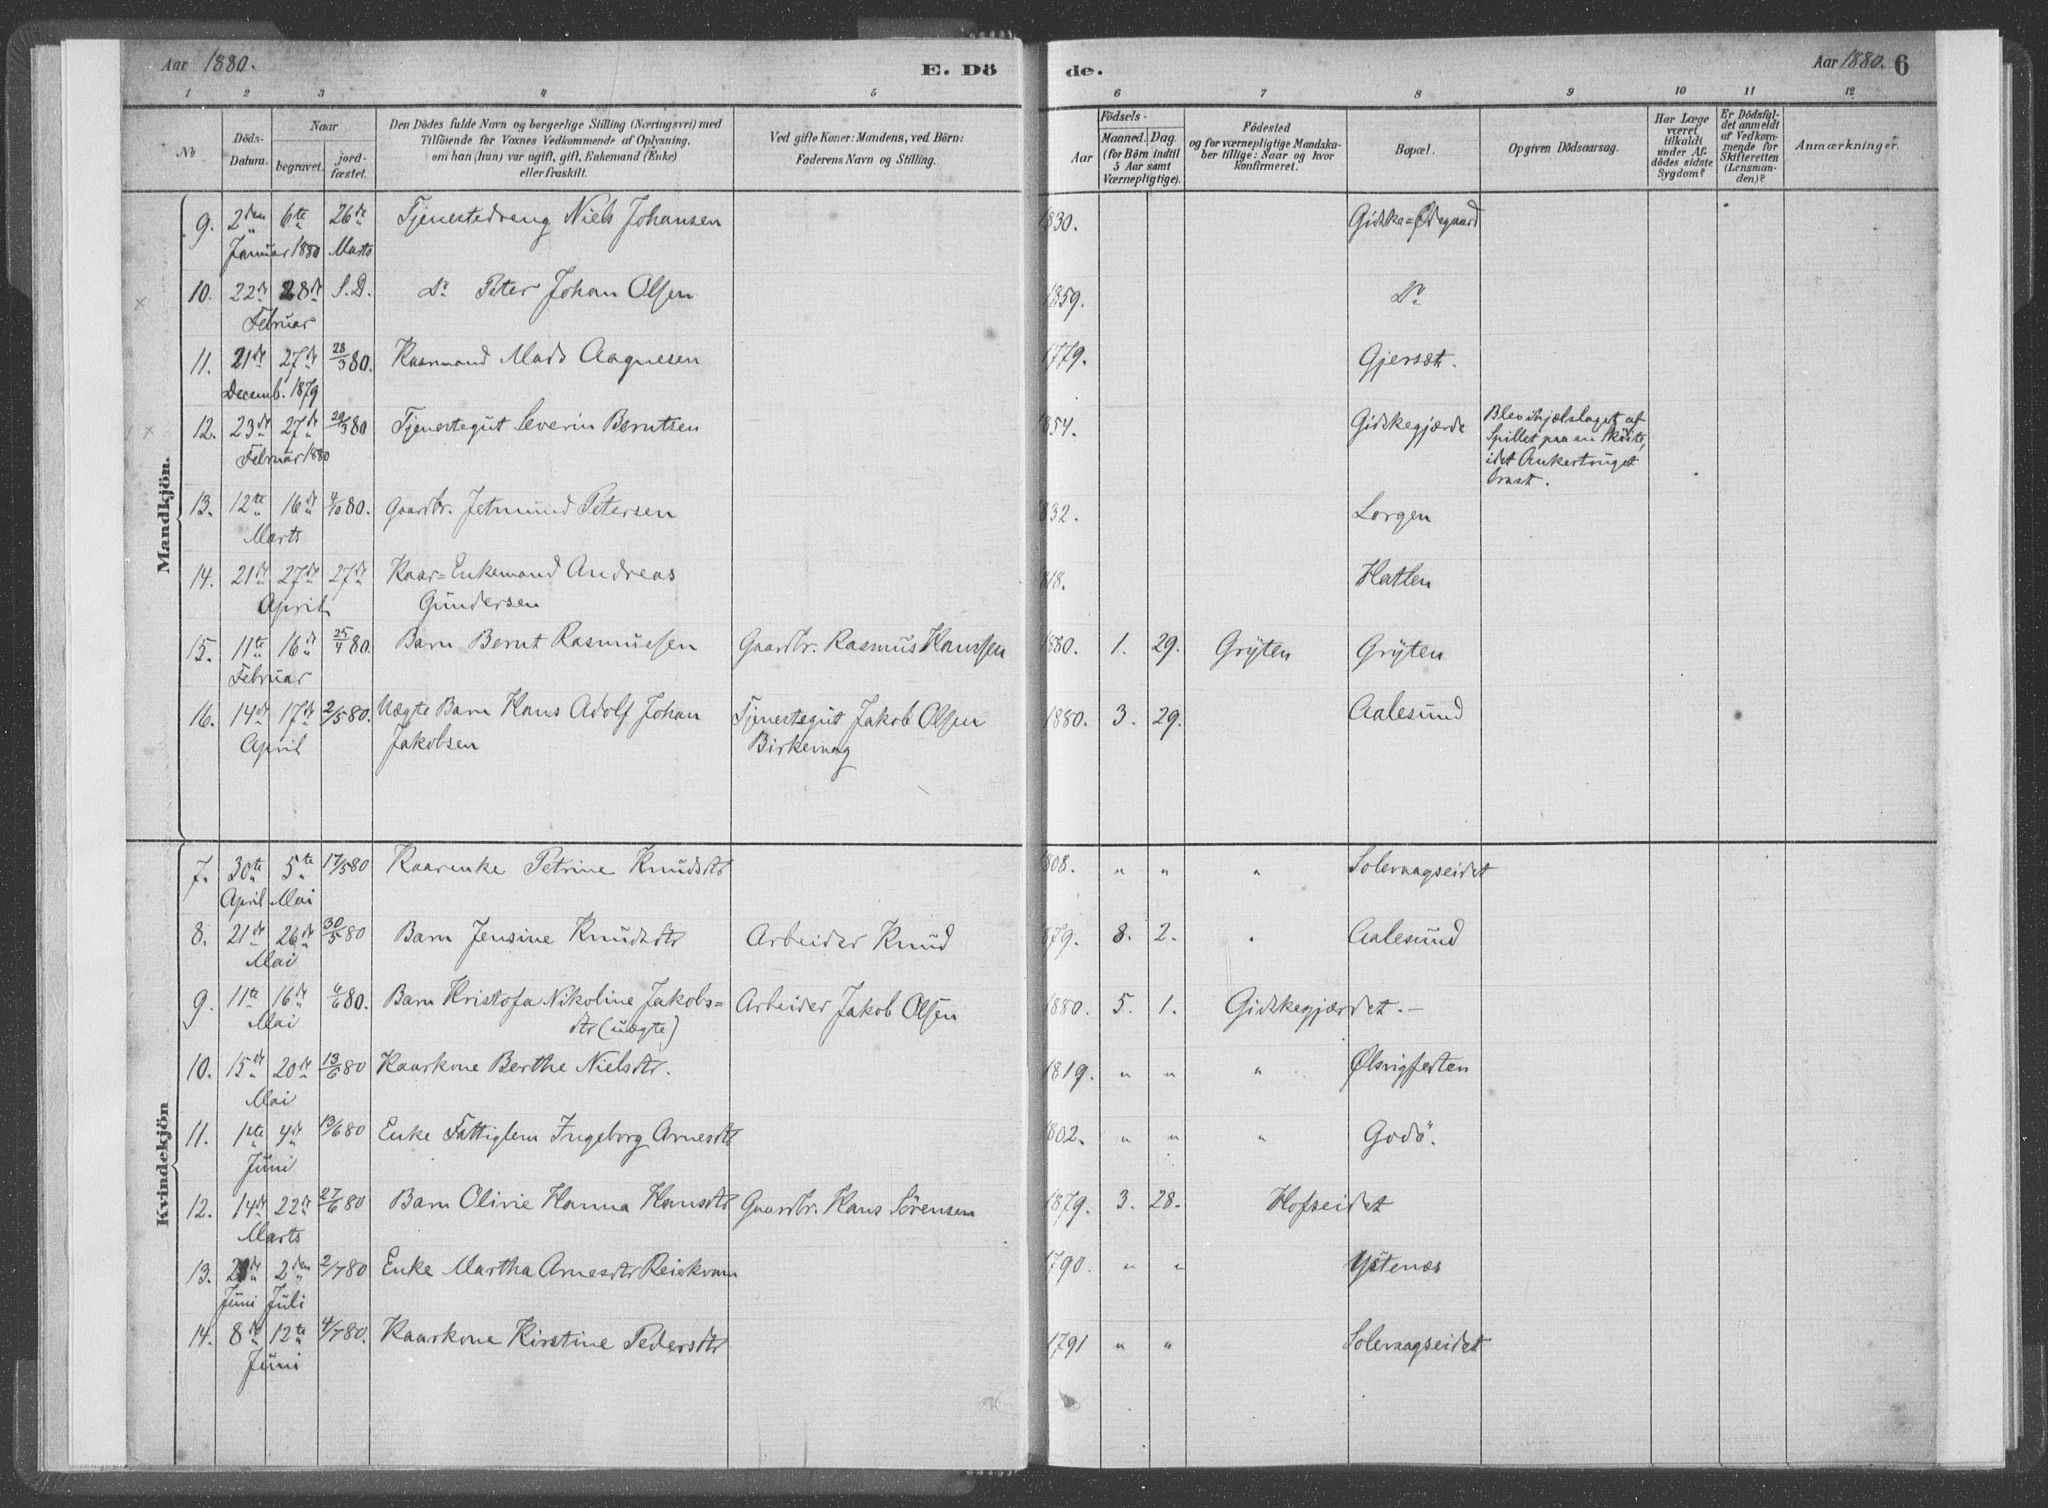 Aar 1880.
E. Dö
de.
Aar 1880. 6
1 2 3 4 5
6 7 8 9 10 11 12
No
Döds-
Datum.
Naar
begravet.
jord-
fæstet.
Den Dödes fulde Navn og borgerlige Stilling (Næringsvei) med
Tilföiende for Voxnes Vedkommende af Oplysning,
om han (hun) var ugift, gift, Enkemand (Enke)
eller fraskilt.
Ved gifte Koner: Mandens, ved Börn:
Faderens Navn og Stilling.
Födsels-
Aar
Maaned. Dag.
(for Børn indtil
5 Aar samt
Værnepligtige).
Födested
og for værnepligtige Mandska-
ber tillige: Naar og hvor
konfirmeret.
Bopæl.
Opgiven Dödsaarsag.
Har Læge
været
tilkaldt
under Af-
dödes sidste
Sygdom?
Er Dödsfal-
det anmeldt
af Vedkom-
mende for
Skifteretten
(Lensman-
den)?
Anmærkninger.
Mandkjön.
9. 2den 6te 26de Tjenestedreng Niels Johansen 1830. Gidske=Ødegaard
Januar 1880 Marts
10. 22de 28de S.D. Do Peter Johan Olsen 1859. Do
Februar
11. 21de 27de 28/3 80. Kaarmand Mads Aagnesen 1779. Gjerset.
Decemb. 1879
12. 23de 27de 29/3 80 Tjenestegut Severin Berntsen 1854. Gidskegjærde Blev ihjelslaget af
Februar 1880 Spillet paa en Skøite,
idet Ankertouget
brast.
13. 12te 16de 4/10 80. Gaardbr. Jetmund Petersen 1832. Lorgen
Marts
14. 21de 27de 27de Kaar=Enkemand Andreas 1818. Hatlen
April Gundersen
15. 11te 16de 25/4 80. Barn Bernt Rasmussen Gaardbr. Rasmus Hanssen 1880. 1. 29. Gryten Gryten
Februar
16. 14de 17de 2/5 80. Uægte Barn Hans Adolf Johan Tjenestegut Jakob Olsen 1880. 3. 29. Aalesund
April Jakobsen Birkevaag
Kvindekjön
7. 30te 5te 17/5 80 Kaarenke Petrine Knudsdtr 1808. " " " Solevaagseidet
April Mai
8. 21de 26de 30/5 80 Barn Jensine Knudsdtr Arbeider Knud 1879. 8. 2. " Aalesund
Mai
9. 11te 16de 6/6 80. Barn Kristofa Nikoline Jakobs= Arbeider Jakob Olsen 1880. 5. 1. Gidskegjærdet. —
Mai dtr (uægte)
10. 15de 20de 13/6 80 Kaarkone Berthe Nielsdtr. 1819. " " " Ølsvigfesten
Mai
11. 1ste 4de 13/6 80 Enke Fattiglem Ingeborg Arnesdtr 1802. " " " Godö.
Juni
12. 14de 22de 27/6 80 Barn Olivie Hanna Hansdtr Gaardbr. Hans Sørensen 1879. 3. 28. Hofseidet
Marts
13. 2den 2/7 80 Enke Martha Arnesdtr Reiekvam 1790. " " Ystenæs
Juni Juli
14. 8de 12te 4/7 80. Kaarkone Kirstine Pedersdtr 1791 " " Solevaagseidet
Juni